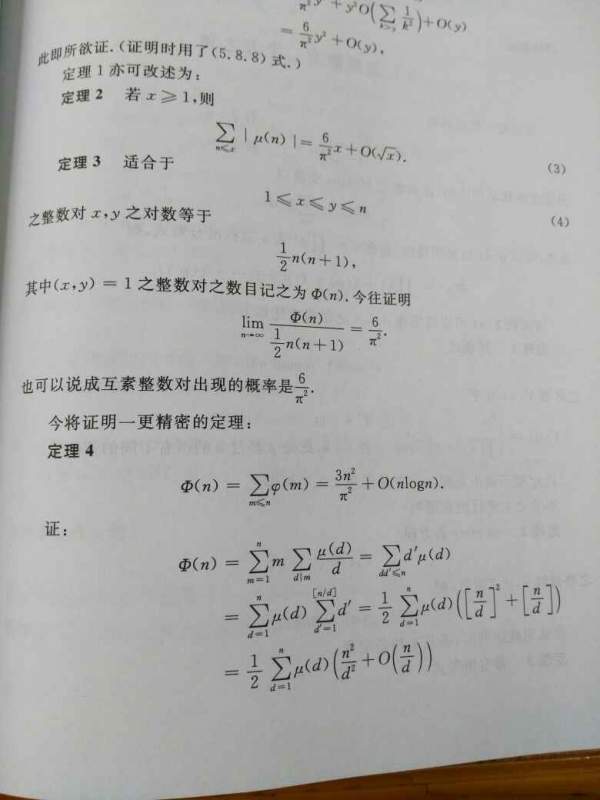 π² y² + y²O(∑ k>y 1/k²) + O(y)
= 6/π² y² + O(y),
此即所欲证.(证明时用了(5.8.8)式.)
定理 1 亦可改述为:
定理 2 若 x ⩾ 1,则
∑ n⩽x | μ(n) | = 6/π² x + O(√x). (3)
定理 3 适合于
1 ⩽ x ⩽ y ⩽ n (4)
之整数对 x,y 之对数等于
1/2 n(n+1),
其中(x,y) = 1 之整数对之数目记之为 Φ(n). 今往证明
lim n→∞ Φ(n) / (1/2 n(n+1)) = 6/π².
也可以说成互素整数对出现的概率是 6/π².
今将证明一更精密的定理:
定理 4
Φ(n) = ∑ m⩽n φ(m) = 3n²/π² + O(nlogn).
证:
Φ(n) = ∑ m=1 n m ∑ d|m μ(d)/d = ∑ dd′⩽n d′μ(d)
= ∑ d=1 n μ(d) ∑ d′=1 [n/d] d′ = 1/2 ∑ d=1 n μ(d)([n/d]² + [n/d])
= 1/2 ∑ d=1 n μ(d)(n²/d² + O(n/d))